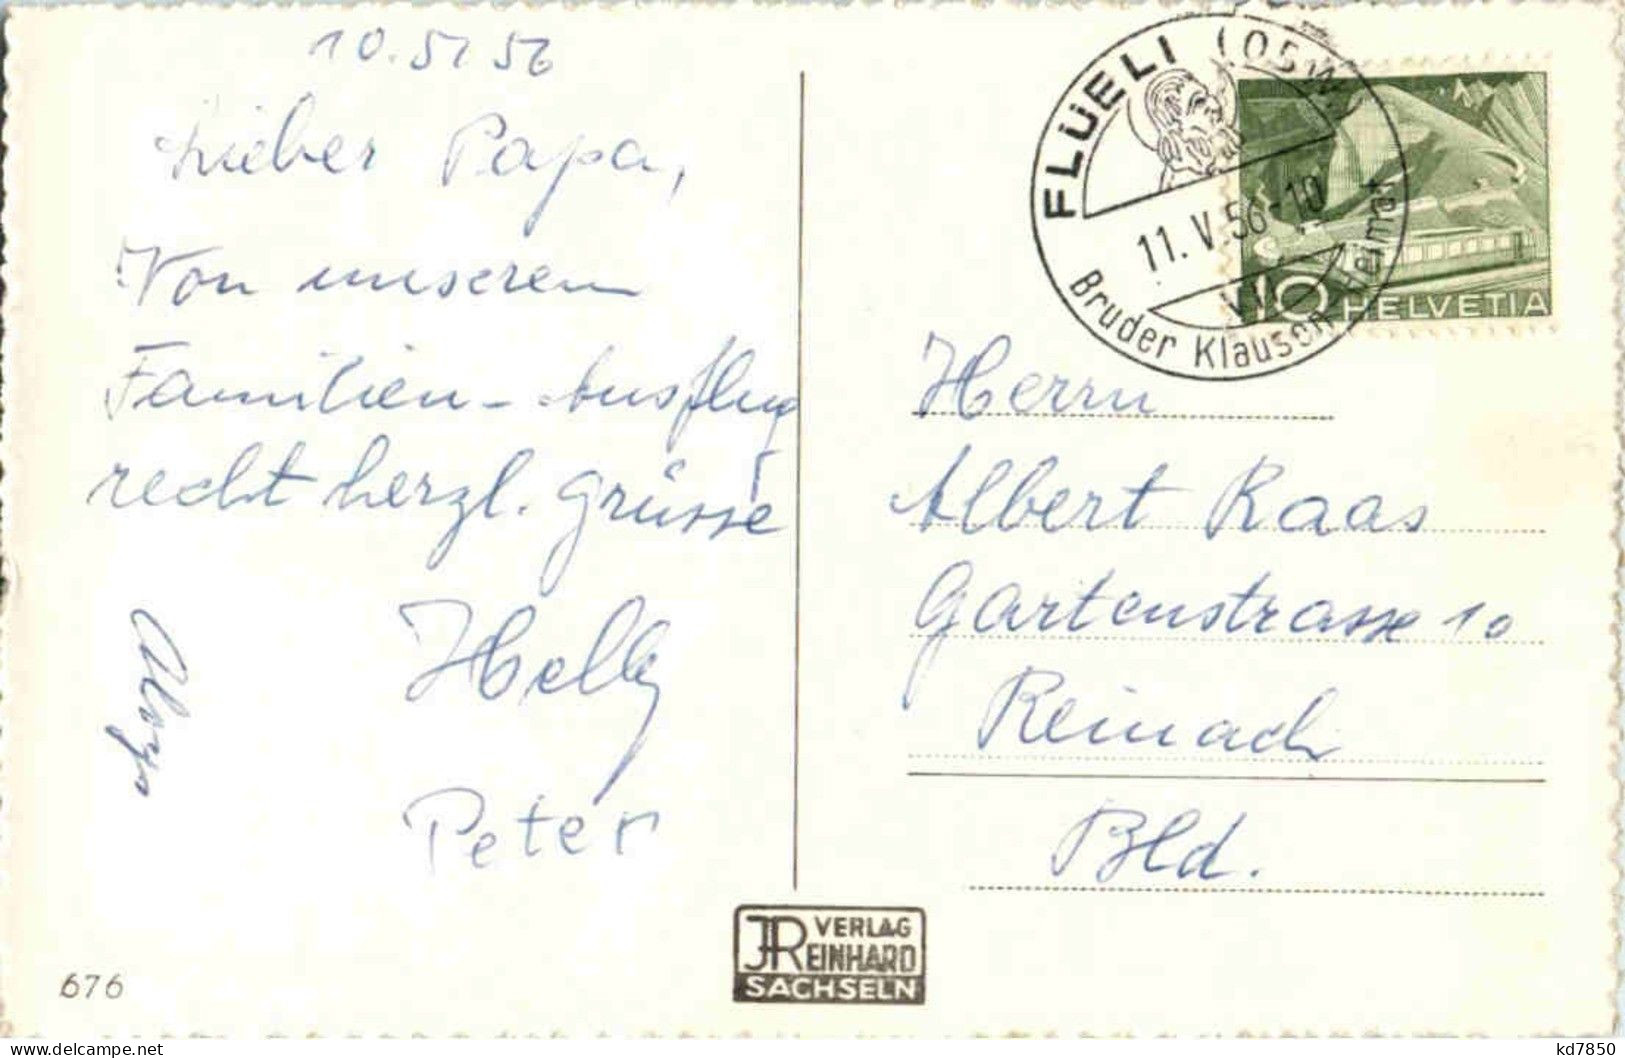 10. 5. 56
Lieber Papa,
Von unserem
Familien-Ausflug
recht herzl. Grüsse
Helly
Peter
676
FLÜELI (OBW.)
11. V. 56-10
VI
Bruder Klausen Heimat
10 HELVETIA
Herrn
Albert Raas
Gartenstrasse 10
Reinach
Bld.
JR VERLAG
REINHARD
SACHSELN
https://www.delcampe.net
kd7850